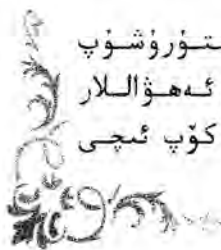 ـتۇرۇشۇپ
ئەھۋاللار
كۆپ ئىچى